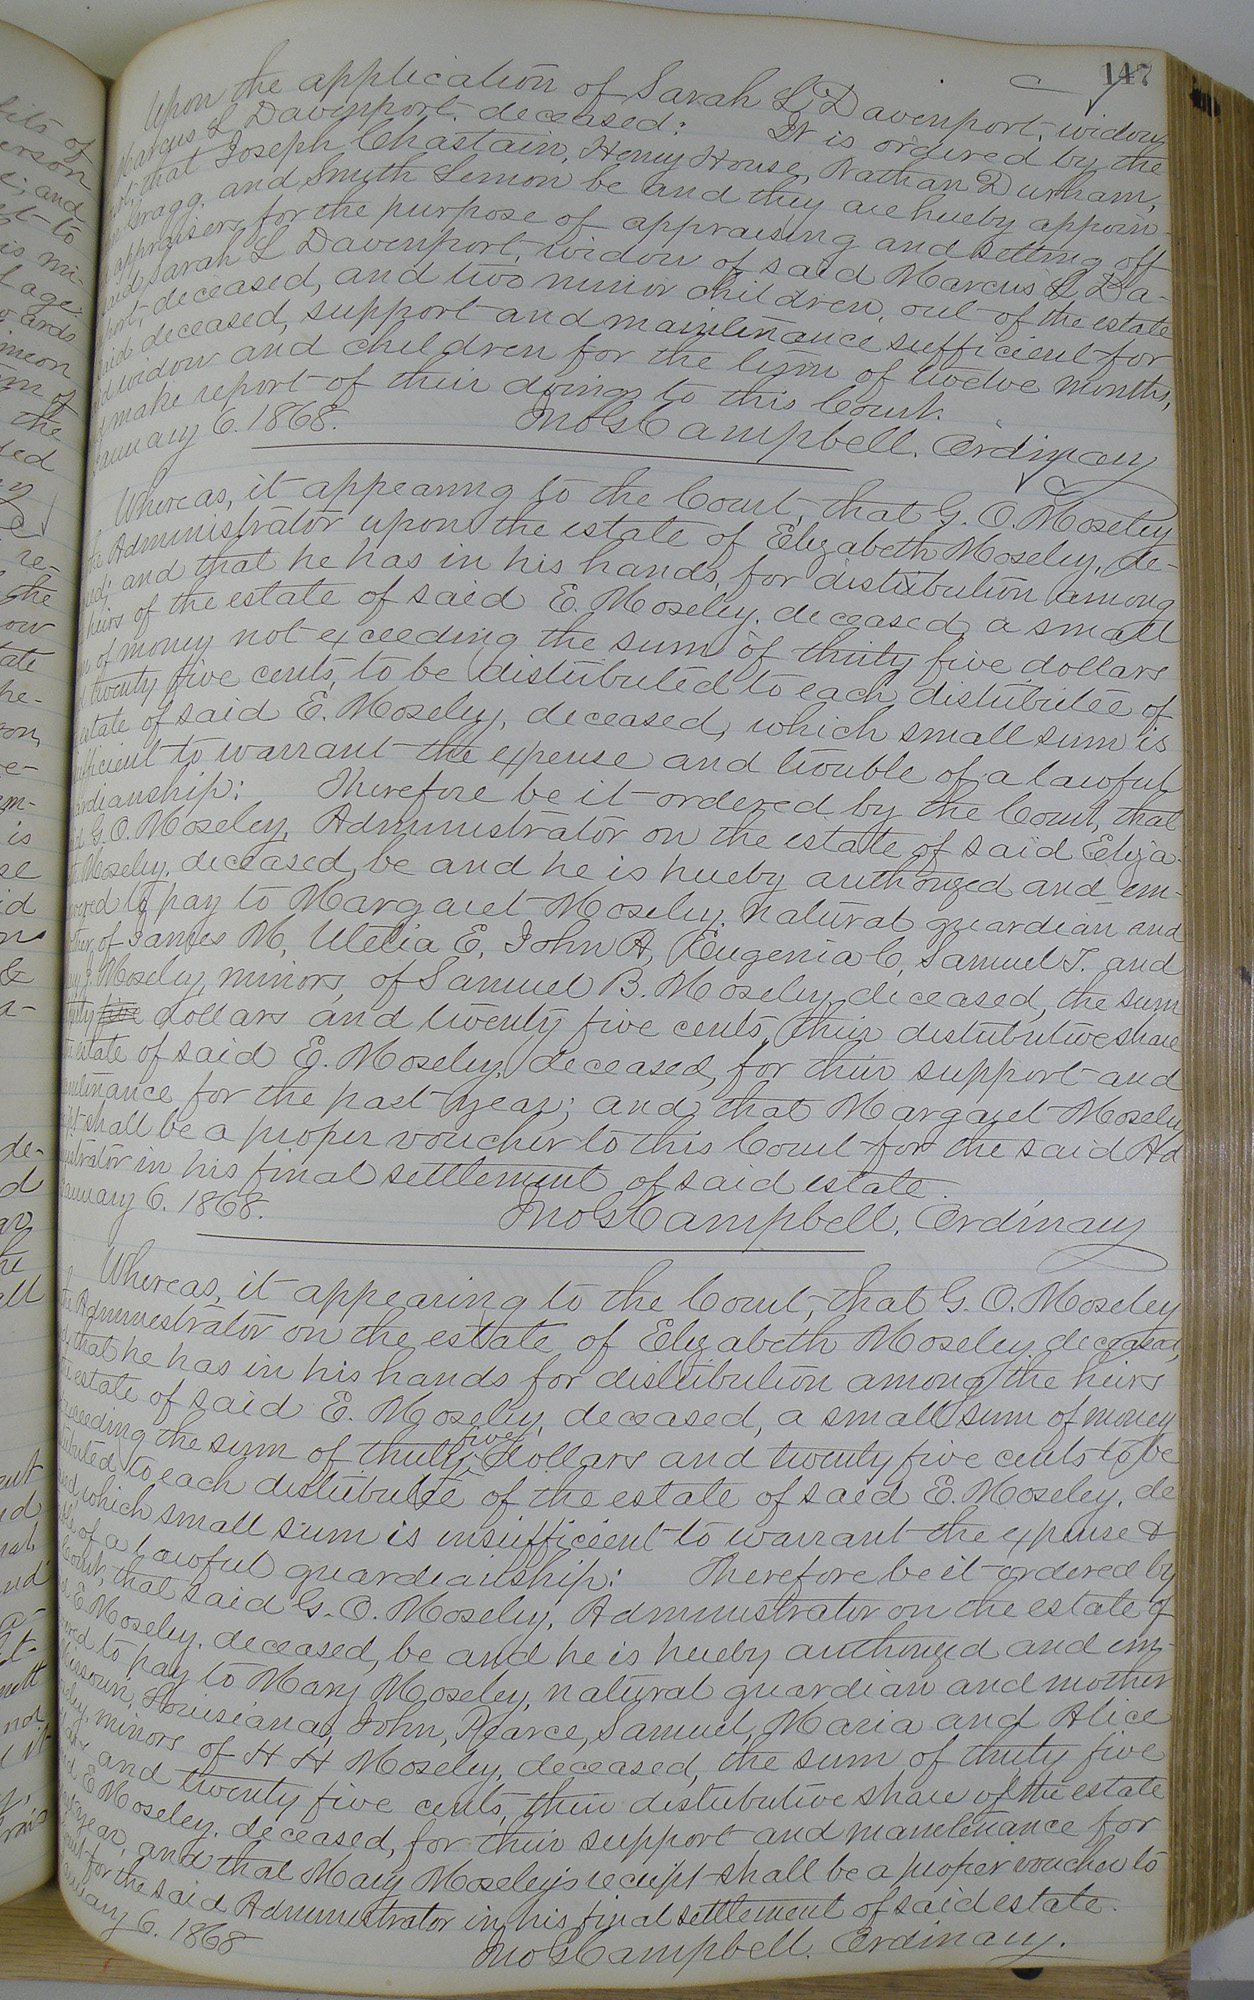 147
Upon the application of Sarah L. Davenport, widow
Marcus L Davenport, deceased: It is ordered by the
that Joseph Chastain, Henry House, Nathan Durham,
Gragg, and Smith Lemon be and they are hereby appoin-
appraisers for the purpose of appraising and setting off
said Sarah L Davenport, widow of said Marcus L Da-
port, deceased, and two minor children, out of the estate
said deceased, support and maintenance sufficient for
widow and children for the term of twelve months,
make report of their doings to this Court.
January 6. 1868. Jno G Campbell, Ordinary
Whereas, it appearing to the Court, that G. O. Moseley
the Administrator upon the estate of Elizabeth Moseley, de-
and that he has in his hands, for distribution among
heirs of the estate of said E. Moseley, deceased, a small
of money not exceeding the sum of thirty five dollars
twenty five cents, to be distributed to each distributee of
estate of said E. Moseley, deceased, which small sum is
sufficient to warrant the expense and trouble of a lawful
ardianship: Therefore be it ordered by the Court, that
G. O. Moseley, Administrator on the estate of said Eliza-
Moseley, deceased, be and he is hereby authorized and em-
wered to pay to Margaret Moseley, natural guardian and
of James M, Uletia E, John A, Eugenia C, Samuel T. and
J. Moseley, minors, of Samuel B. Moseley, deceased, the sum
five dollars and twenty five cents, their distributive share
estate of said E. Moseley, deceased, for their support and
maintenance for the past year; and that Margaret Moseley
shall be a proper voucher to this Court for the said Ad
istrator in his final settlement of said estate.
January 6. 1868. Jno G Campbell, Ordinary
Whereas, it appearing to the Court, that G. O. Moseley
the Administrator on the estate of Elizabeth Moseley, deceased,
that he has in his hands for distribution among the heirs
estate of said E. Moseley, deceased, a small sum of money
exceeding the sum of thirty five dollars and twenty five cents to be
tributed to each distributee of the estate of said E. Moseley, de
which small sum is insufficient to warrant the expense &
of a lawful guardianship: Therefore be it ordered by
Court, that said G. O. Moseley, Administrator on the estate of
E. Moseley, deceased, be and he is hereby authorized and em-
to pay to Mary Moseley, natural guardian and mother
Missouri, Louisiana, John, Pearce, Samuel, Maria and Alice
minors of H H Moseley, deceased, the sum of thirty five
and twenty five cents, their distributive share of the estate
E Moseley, deceased, for their support and maintenance for
year, and that Mary Moseley's receipt shall be a proper voucher to
for the said Administrator in his final settlement of said estate.
January 6. 1868 Jno G Campbell, Ordinary.